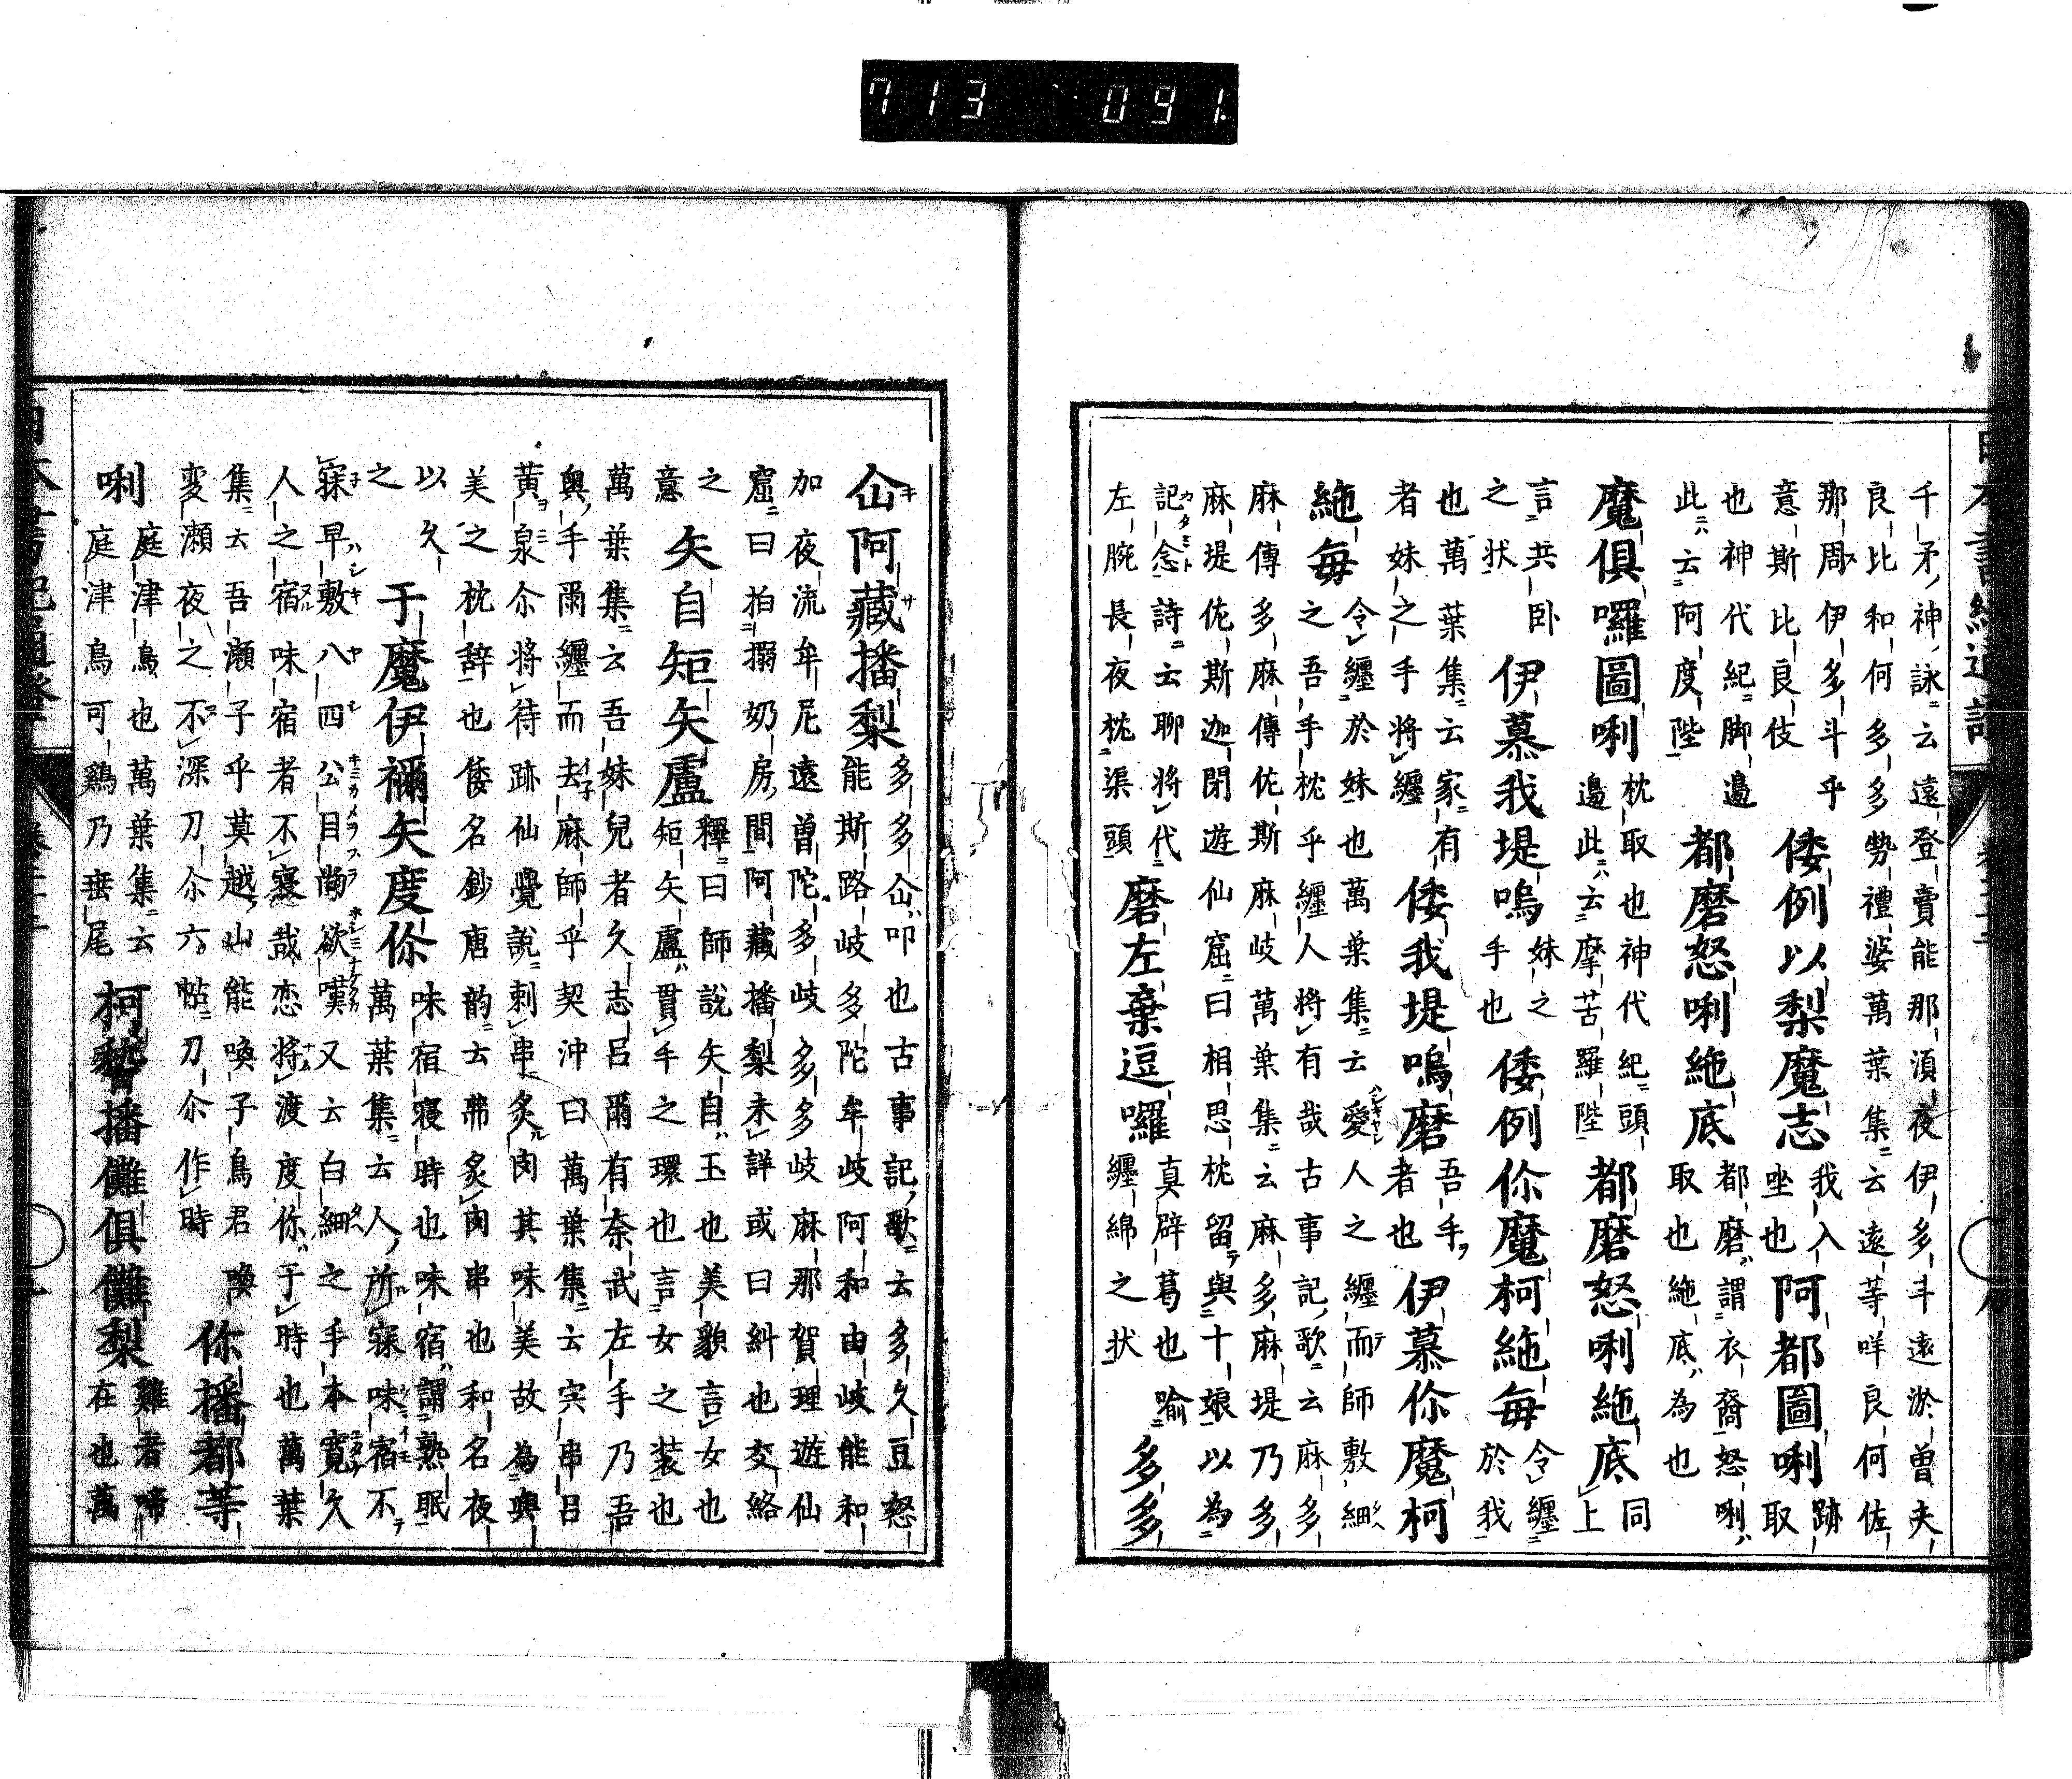 千矛神詠云遠登賣能那湏夜伊多斗遠淤曽夫
良比和何多多勢禮婆萬葉集云遠等咩良何佐
那周伊多斗乎
意斯比良伎
倭例以梨魔志
我入
坐也
阿都圖唎
跡
取
也神代紀脚邊
此云阿度陛
都磨怒唎絁底
都磨謂衣裔怒唎
取也絁底為也
魔俱囉圖唎
枕取也神代紀頭
邊此云摩苦羅陛
都磨怒唎絁底
同
上
言共卧
之状
伊慕我堤嗚
妹之
手也
倭例伱魔柯絁毎
令纏
於我
也萬葉集云家有
者妹之手将纏
倭我堤嗚磨
吾手
者也
伊慕伱魔柯
絁毎
令纏於妹也萬葉集云愛人之纏而師敷細
之吾手枕乎纏人将有哉古事記歌云麻多
麻傳多麻傳佐斯麻岐萬葉集云麻多麻堤乃多
麻堤佐斯迦閉遊仙窟曰相思枕留與十娘以為
記念詩云聊将代
左腕長夜枕渠頭
磨左棄逗囉
真辟葛也喻
纏綿之状
多多
企阿藏播梨
多多企叩也古事記歌云多久豆怒
能斯路岐多陀牟岐阿和由岐能和
加夜流牟尼遠曽陀多岐多多岐麻那賀理遊仙
窟曰拍搦奶房間阿藏播梨未詳或曰糾也交絡
之
意
矢自矩矢盧
釋曰師說矢自玉也美貌言女也
矩矢盧貫手之環也言女之装也
萬葉集云吾妹兒者久志呂爾有奈武左手乃吾
奥手爾纏而去麻師乎契沖曰萬葉集云宍串呂
黄泉尓将待跡仙覺說刺串炙肉其味美故為與
美之枕辞也倭名鈔唐韵云弗炙肉串也和名夜
以久
之
于魔伊禰矢度伱
味宿寝時也味宿謂熟眠
萬葉集云人所寐味宿不
寐早敷八四公目尚欲嘆又云白細之手本寛久
人之宿味宿者不寝哉恋将渡度伱于時也萬葉
集云吾瀬子乎莫越山能喚子鳥君喚
変瀬夜之不深刀尓六帖刀尓作時
伱播都等
唎
庭津鳥也萬葉集云
庭津鳥可鷄乃垂尾
柯稽播儺俱儺梨
雞者啼
在也萬